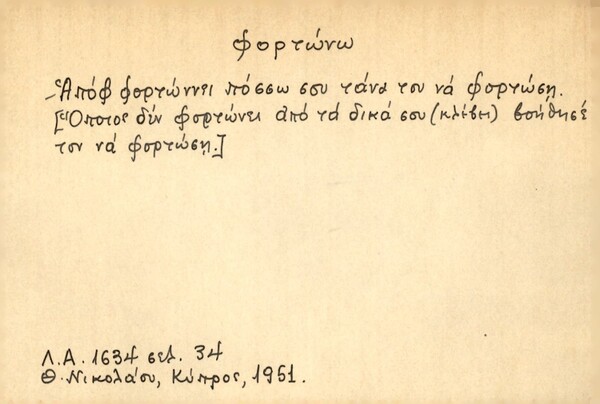 φορτώνω
- Ἀπόβ φορτώννει πόσσω σου τάνα τον νά φορτώση.
[Ὅποιος δέν φορτώνει από τά δικά σου (κλέβει) βοήθησέ
τον νά φορτώση.]
Λ.Α. 1634 σελ. 34
Θ. Νικολάου, Κύπρος, 1951.